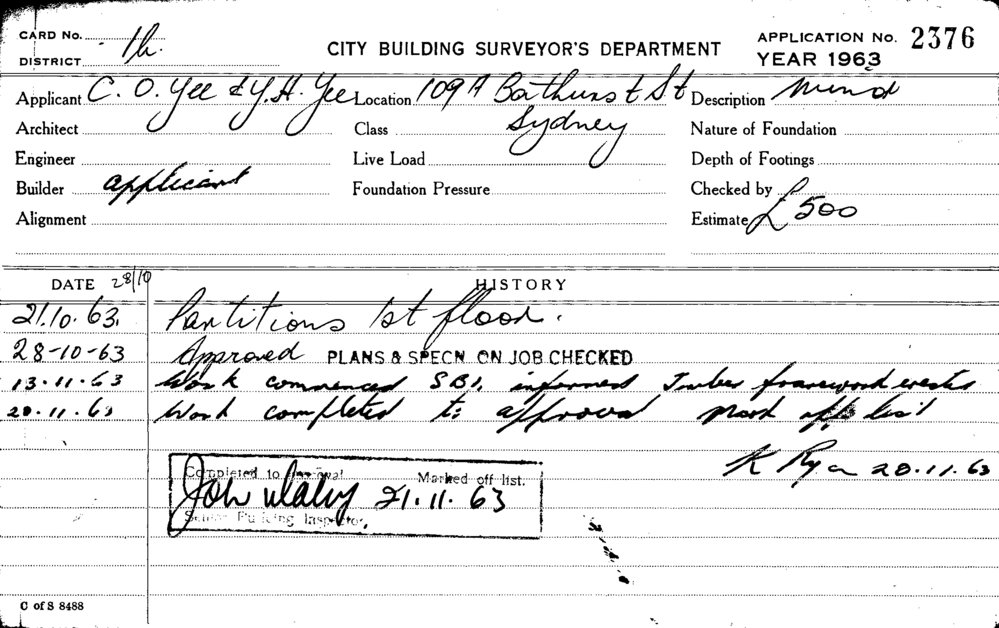 CARD No.
DISTRICT
CITY BUILDING SURVEYOR'S DEPARTMENT
APPLICATION No. 2376
YEAR 1963
Applicant C. O. Yee & Y. H. Yee Location 109A Bathurst St Description Minor
Architect Class Sydney Nature of Foundation
Engineer Live Load Depth of Footings
Builder applicant Foundation Pressure Checked by
Alignment Estimate £500
DATE 28/10 HISTORY
21.10.63. Partitions 1st floor.
28-10-63 Approved PLANS & SPECN ON JOB CHECKED
13.11.63 Work commenced S.B.I. informed Timber framework erected
20.11.63 Work completed to approval Mark off list
K Ryan 20.11.63
Completed to Approval Marked off list.
21.11.63
Senior Building Inspector.
C of S 8488